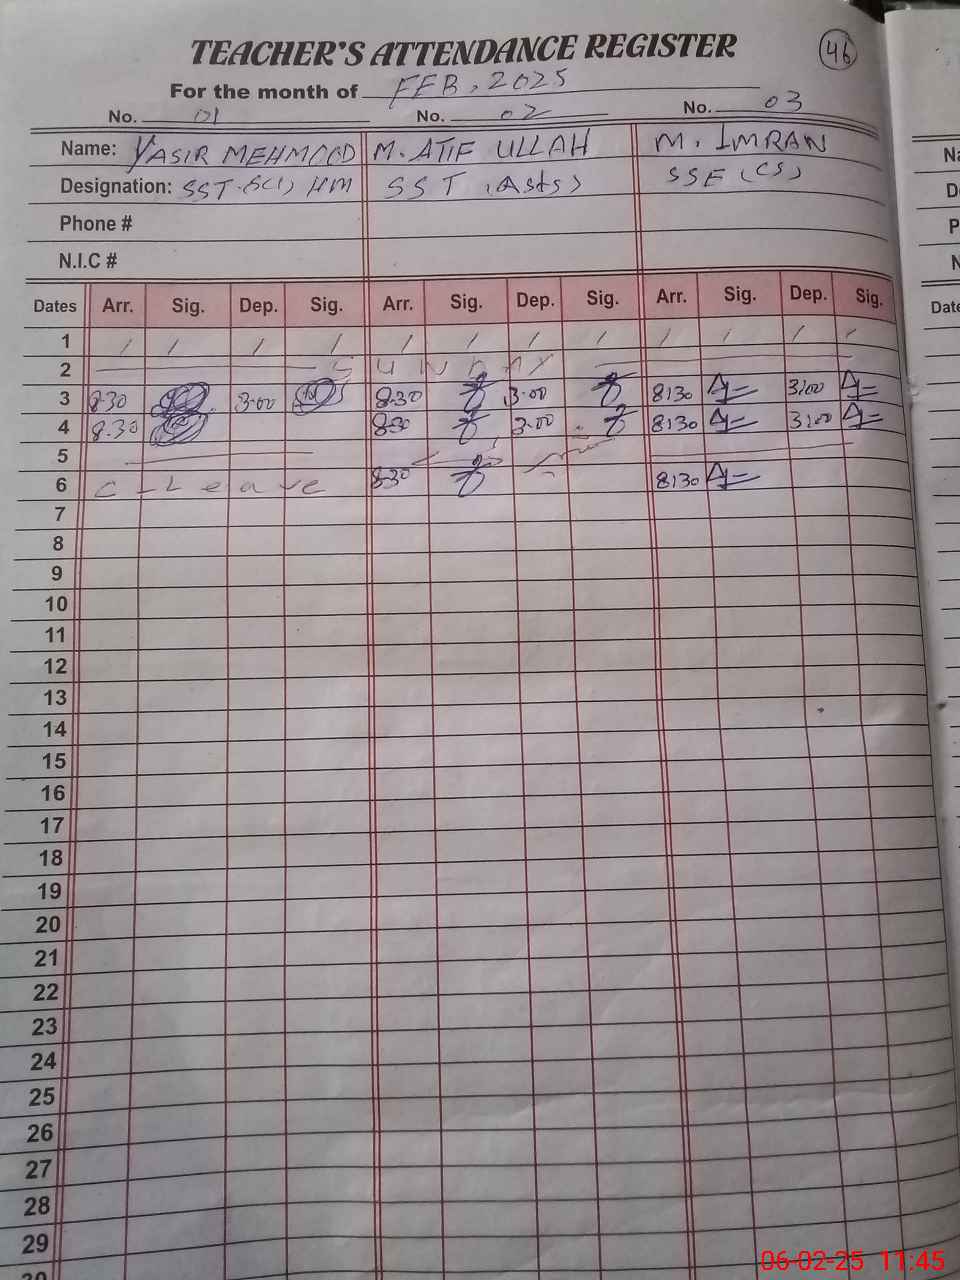 TEACHER'S ATTENDANCE REGISTER 46
For the month of FEB, 2025
No. 01 No. 02 No. 03
Name: YASIR MEHMOOD M. ATIF ULLAH M. IMRAN
Designation: SST (SCI) HM SST (Arts) SSE (CS)
Phone #
N.I.C #
Dates Arr. Sig. Dep. Sig. Arr. Sig. Dep. Sig. Arr. Sig. Dep. Sig.
1 / / / / / / / / / / / /
2 SUNDAY
3 8:30 3:00 8:30 3:00 8:30 3:00
4 8:30 8:30 3:00 8:30 3:00
5
6 C-Leave 8:30 8:30
7
8
9
10
11
12
13
14
15
16
17
18
19
20
21
22
23
24
25
26
27
28
29
30
Na
De
P
N
Date
06-02-25 11:45